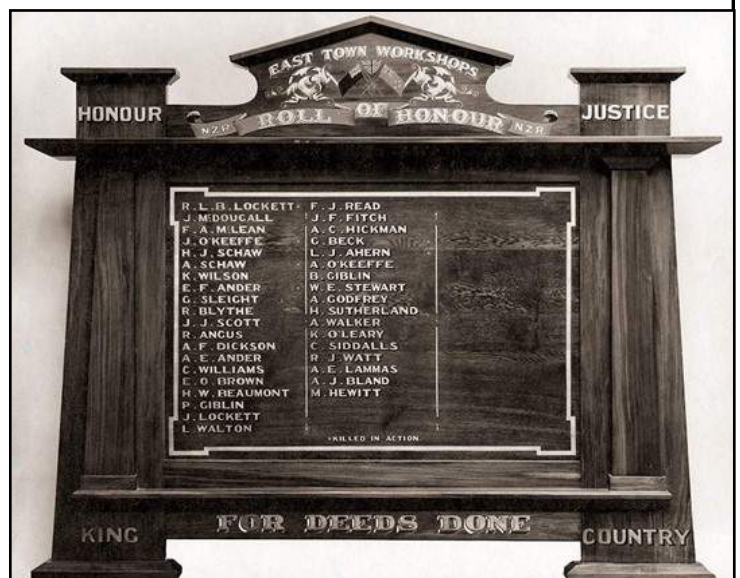 EAST TOWN WORKSHOPS
N.Z.R ROLL OF HONOUR N.Z.R
HONOUR
JUSTICE
R.L.B.LOCKETT
J.McDOUGALL
F.A.McLEAN
J.O'KEEFFE
H.J.SCHAW
A.SCHAW
K.WILSON
E.F.ANDER
G.SLEIGHT
R.BLYTHE
J.J.SCOTT
R.ANGUS
A.F.DICKSON
A.E.ANDER
C.WILLIAMS
E.O.BROWN
H.W.BEAUMONT
P.GIBLIN
J.LOCKETT
L.WALTON
F.J.READ
J.F.FITCH
A.C.HICKMAN
G.BECK
L.J.AHERN
A.O'KEEFFE
B.GIBLIN
W.E.STEWART
A.GODFREY
H.SUTHERLAND
A.WALKER
K.O'LEARY
C.SIDDALLS
R.J.WATT
A.E.LAMMAS
A.J.BLAND
M.HEWITT
KILLED IN ACTION
FOR DEEDS DONE
KING
COUNTRY